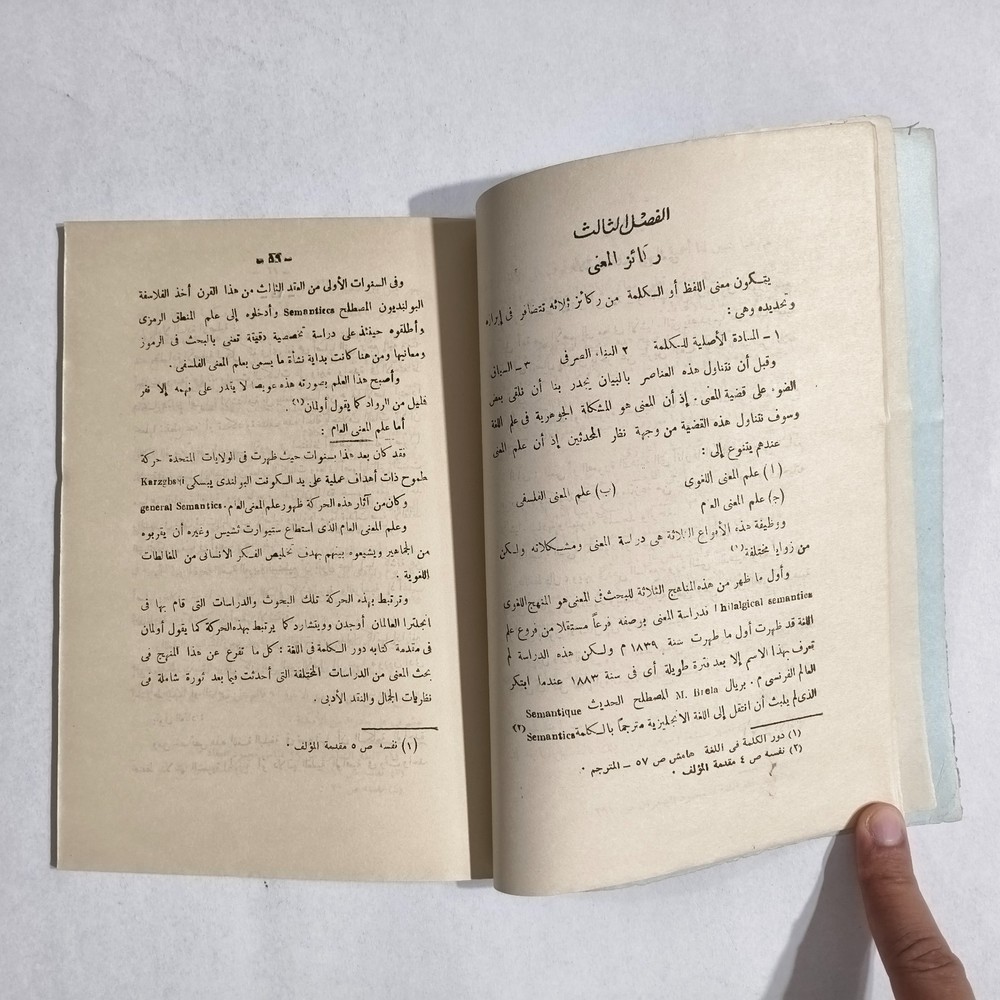 الفصل الثالث
ركائز المعنى
يتكون معنى اللفظ أو الكلمة من ركائز ثلاثة تتضافر فى إبرازه
وتحديده وهى :
١ ـ المادة الأصلية للكلمة ٢ البناء الصرفى ٣ ـ السياق
وقبل أن نتناول هذه العناصر بالبيان يجدر بنا أن نلقى بعض
الضوء على قضية المعنى . إذ أن المعنى هو المشكلة الجوهرية فى علم اللغة
وسوف نتناول هذه القضية من وجهة نظر المحدثين إذ أن علم المعنى
عندهم يتنوع إلى :
( ا ) علم المعنى اللغوى (ب) علم المعنى الفلسفى
(ج) علم المعنى العام
ووظيفة هذه الأنواع الثلاثة هى دراسة المعنى ومشكلاته ولكن
من زوايا مختلفة(١)
وأول ما ظهر من هذه المناهج الثلاثة للبحث فى المعنى هو المنهج اللغوى
Philalgical semantics فدراسة المعنى بوصفه فرعاً مستقلا من فروع علم
اللغة قد ظهرت أول ما ظهرت سنة ١٨٣٩ م ولكن هذه الدراسة لم
تعرف بهذا الاسم إلا بعد فترة طويلة أى فى سنة ١٨٨٣ عندما ابتكر
العالم الفرنسى م . بريال M. Brela المصطلح الحديث Semantique
الذى لم يلبث أن انتقل إلى اللغة الانجليزية مترجماً بالكلمة Semantics(٢)
(١) دور الكلمة فى اللغة هامش ص ٥٧ ـ المترجم .
(٢) نفسه ص ٤ مقدمة المؤلف .
وفى السنوات الأولى من العقد الثالث من هذا القرن أخذ الفلاسفة
البولنديون المصطلح Semantics وأدخلوه إلى علم المنطق الرمزى
وأطلقوه حينئذ على دراسة تخصصية دقيقة تعنى بالبحث فى الرموز
ومعانيها ومن هنا كانت بداية نشأة ما يسمى بعلم المعنى الفلسفى .
وأصبح هذا العلم بصورته هذه عويصا لا يقدر على فهمه إلا نفر
قليل من الرواد كما يقول أولمان(١) .
أما علم المعنى العام :
فقد كان بعد هذا بسنوات حيث ظهرت فى الولايات المتحدة حركة
طموح ذات أهداف عملية على يد الكونت البولندى يبسكى Karzgbski
وكان من آثار هذه الحركة ظهور علم المعنى العام . general Semantics
وعلم المعنى العام الذى استطاع ستيوارت تشيس وغيره أن يقربوه
من الجماهير ويشيعوه بينهم بهدف تخليص الفكر الانسانى من المغالطات
اللغوية .
وترتبط بهذه الحركة تلك البحوث والدراسات التى قام بها فى
انجلترا العالمان أوجدن وويتشارد كما يرتبط بهذه الحركة كما يقول أولمان
فى مقدمة كتابه دور الكلمة فى اللغة : كل ما تفرع عن هذا المنهج فى
بحث المعنى من الدراسات المختلفة التى أحدثت فيما بعد ثورة شاملة فى
نظريات الجمال والنقد الأدبى .
(١) نفسه ص ٥ مقدمة المؤلف .